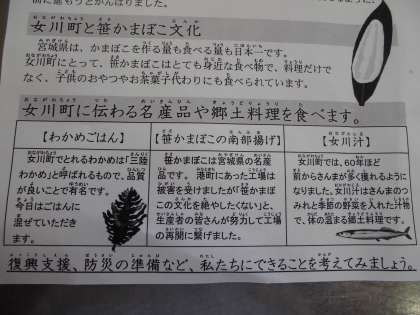 前に進もうとがんばりました。
女川町と笹かまぼこ文化
宮城県は、かまぼこを作る量も食べる量も日本一です。
女川町にとって、笹かまぼこはとても身近な食べ物で、料理だけで
なく、子供のおやつやお茶菓子代わりにも食べられています。
女川町に伝わる名産品や郷土料理を食べます。
【わかめごはん】
女川町でとれるわかめは「三陸
わかめ」と呼ばれるもので、品質
が良いことで有名です。
今日はごはんに
混ぜていただき
ます。
【笹かまぼこの南部揚げ】
笹かまぼこは宮城県の名産
品です。港町にあった工場は
被害を受けましたが「笹かまぼ
この文化を絶やしたくない」と、
生産者の皆さんが努力して工場
の再開に繋げました。
【女川汁】
女川町では、60年ほど
前からさんまが多く獲れるように
なりました。女川汁はさんまのつ
みれと季節の野菜を入れた汁物
で、体の温まる郷土料理です。
復興支援、防災の準備など、私たちにできることを考えてみましょう。